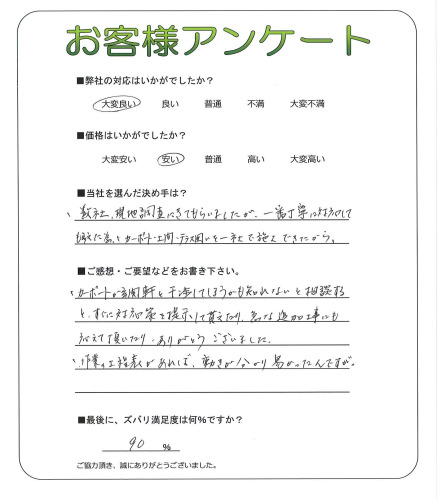 お客様アンケート
■弊社の対応はいかがでしたか?
大変良い 良い 普通 不満 大変不満
■価格はいかがでしたか?
大変安い 安い 普通 高い 大変高い
■当社を選んだ決め手は?
、数社、現地調査にきてもらいましたが、一番丁寧に対応して
為、カーポート・土間・テラス囲いを一社で施工できたから。
■ご感想・ご要望などをお書き下さい。
、カーポートが玄関軒と干渉してしまうかも知れないと相談する
と、すぐに対応策を提示して貰えたり、急な追加工事にも
応えて頂いたり、ありがとうございました。
、作業の工程表があれば、動きが分かり易かったんですが。
■最後に、ズバリ満足度は何%ですか?
90 %
ご協力頂き、誠にありがとうございました。